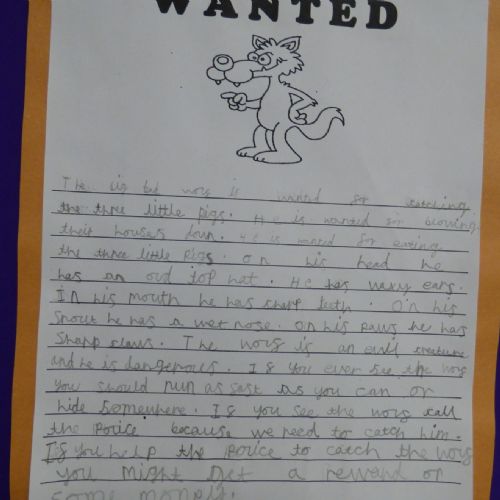 WANTED
The big bad wolf is wanted for catching
the three little pigs. He is wanted for blowing
their houses down. He is wanted for eating
the three little pigs. on his head he
has an old top hat. He has waxy ears.
In his mouth he has sharp teeth. On his
snout he has a wet nose. on his paws he has
sharp claws. The wolf is an evil creature
and he is dangerous. If you ever see the wolf
you should run as fast as you can or
hide somewhere. If you see the wolf call
the police because we need to catch him.
If you help the police to catch the wolf
you might get a reward of
some money!